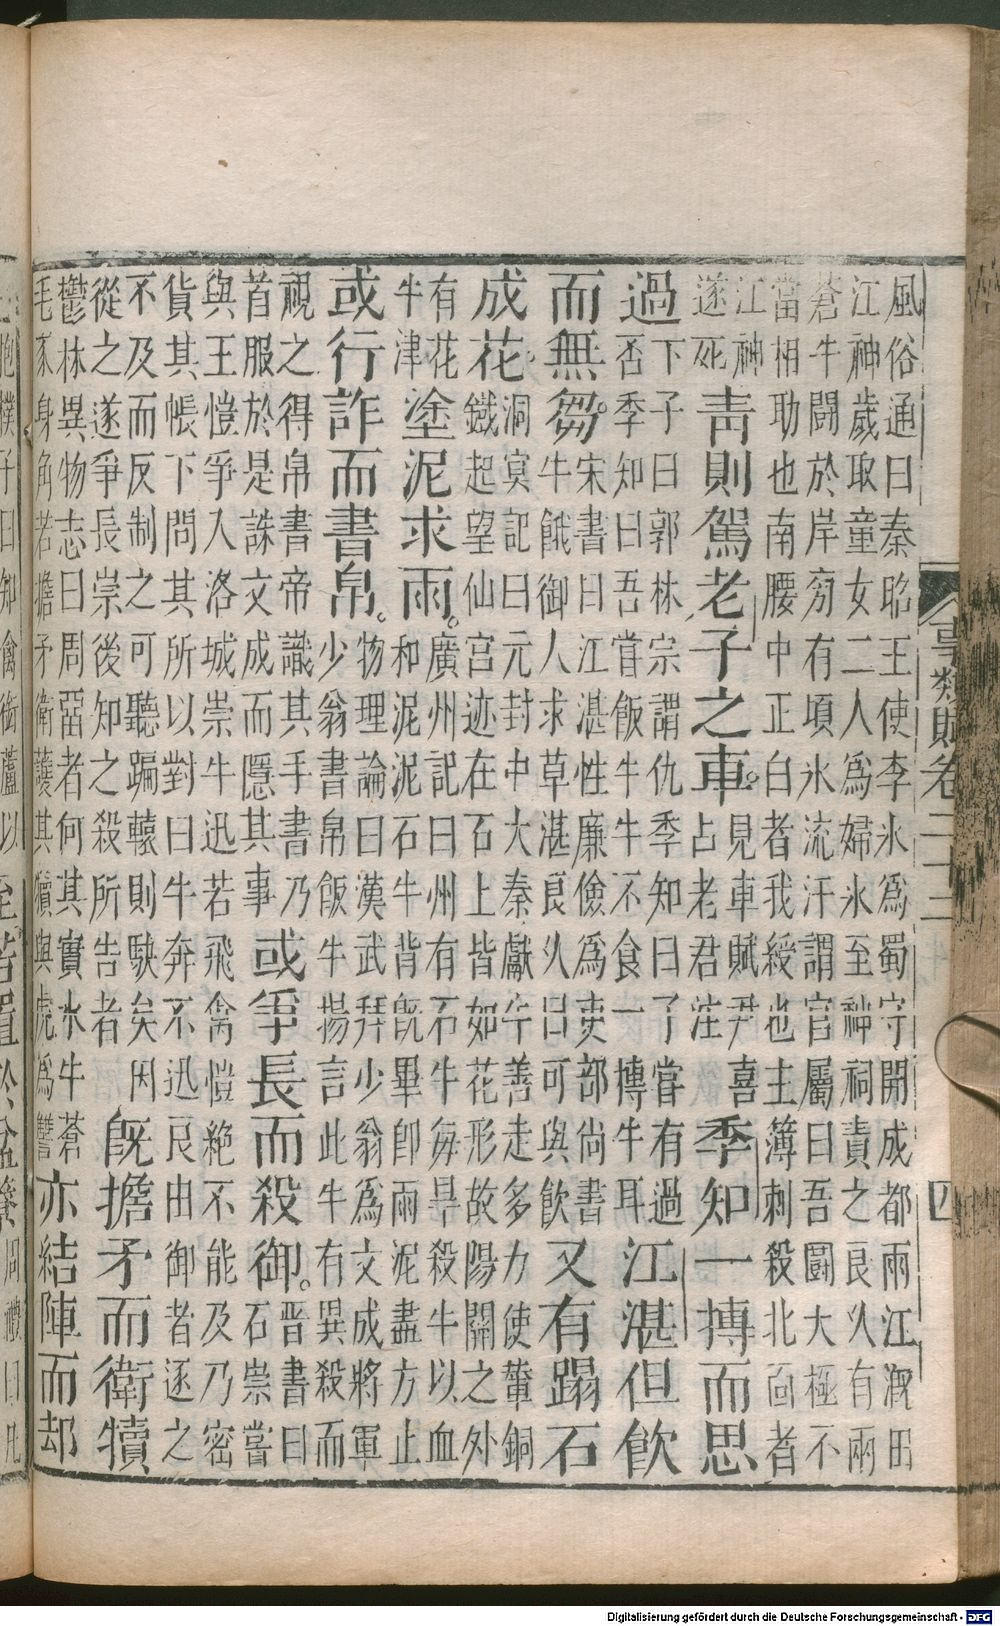 事類賦卷二十三 四
風俗通曰秦昭王使李氷爲蜀守開成都兩江溉田
江神歲取童女二人爲婦氷至神祠責之良久有兩
蒼牛鬭於岸旁有頃氷流汗謂官屬曰吾鬭大極不
當相助也南腰中正白者我綬也主簿刺殺北向者
江神
遂死
青則駕老子之車
見車賦尹喜
占老君注
季知一摶而思
過
下子曰郭林宗謂仇季知曰子嘗有過
否季知曰吾嘗飯牛牛不食一摶牛耳
江湛但飲
而無芻
宋書曰江湛性廉儉爲吏部尚書
牛餓御人求草湛良久曰可與飲
又有蹋石
成花
洞冥記曰元封中大秦獻牛善走多力使輦銅
鐵起望仙宮迹在石上皆如花形故陽關之外
有花
牛津
塗泥求雨
廣州記曰州有石牛每旱殺牛以血
和泥泥石牛背既畢卽雨泥盡方止
或行詐而書帛
物理論曰漢武拜少翁爲文成將軍
少翁書帛飯牛揚言此牛有異殺而
視之得帛書帝識其手書乃
首服於是誅文成而隱其事
或爭長而殺御
晉書曰
石崇嘗
與王愷爭入洛城崇牛迅若飛禽愷絶不能及乃密
貨其帳下問其所以對曰牛奔不迅良由御者逐之
不及而反制之可聽蹁轅則駃矣因
從之遂爭長崇後知之殺所告者
既擔矛而衛犢
鬱林異物志曰周畱者何其實水牛蒼
毛豕身角若擔矛衛護其犢與虎爲讐
亦結陣而却
抱樸子曰知禽銜蘆以
至若置於盆簝
周禮曰凡
Digitalisierung gefördert durch die Deutsche Forschungsgemeinschaft - DFG